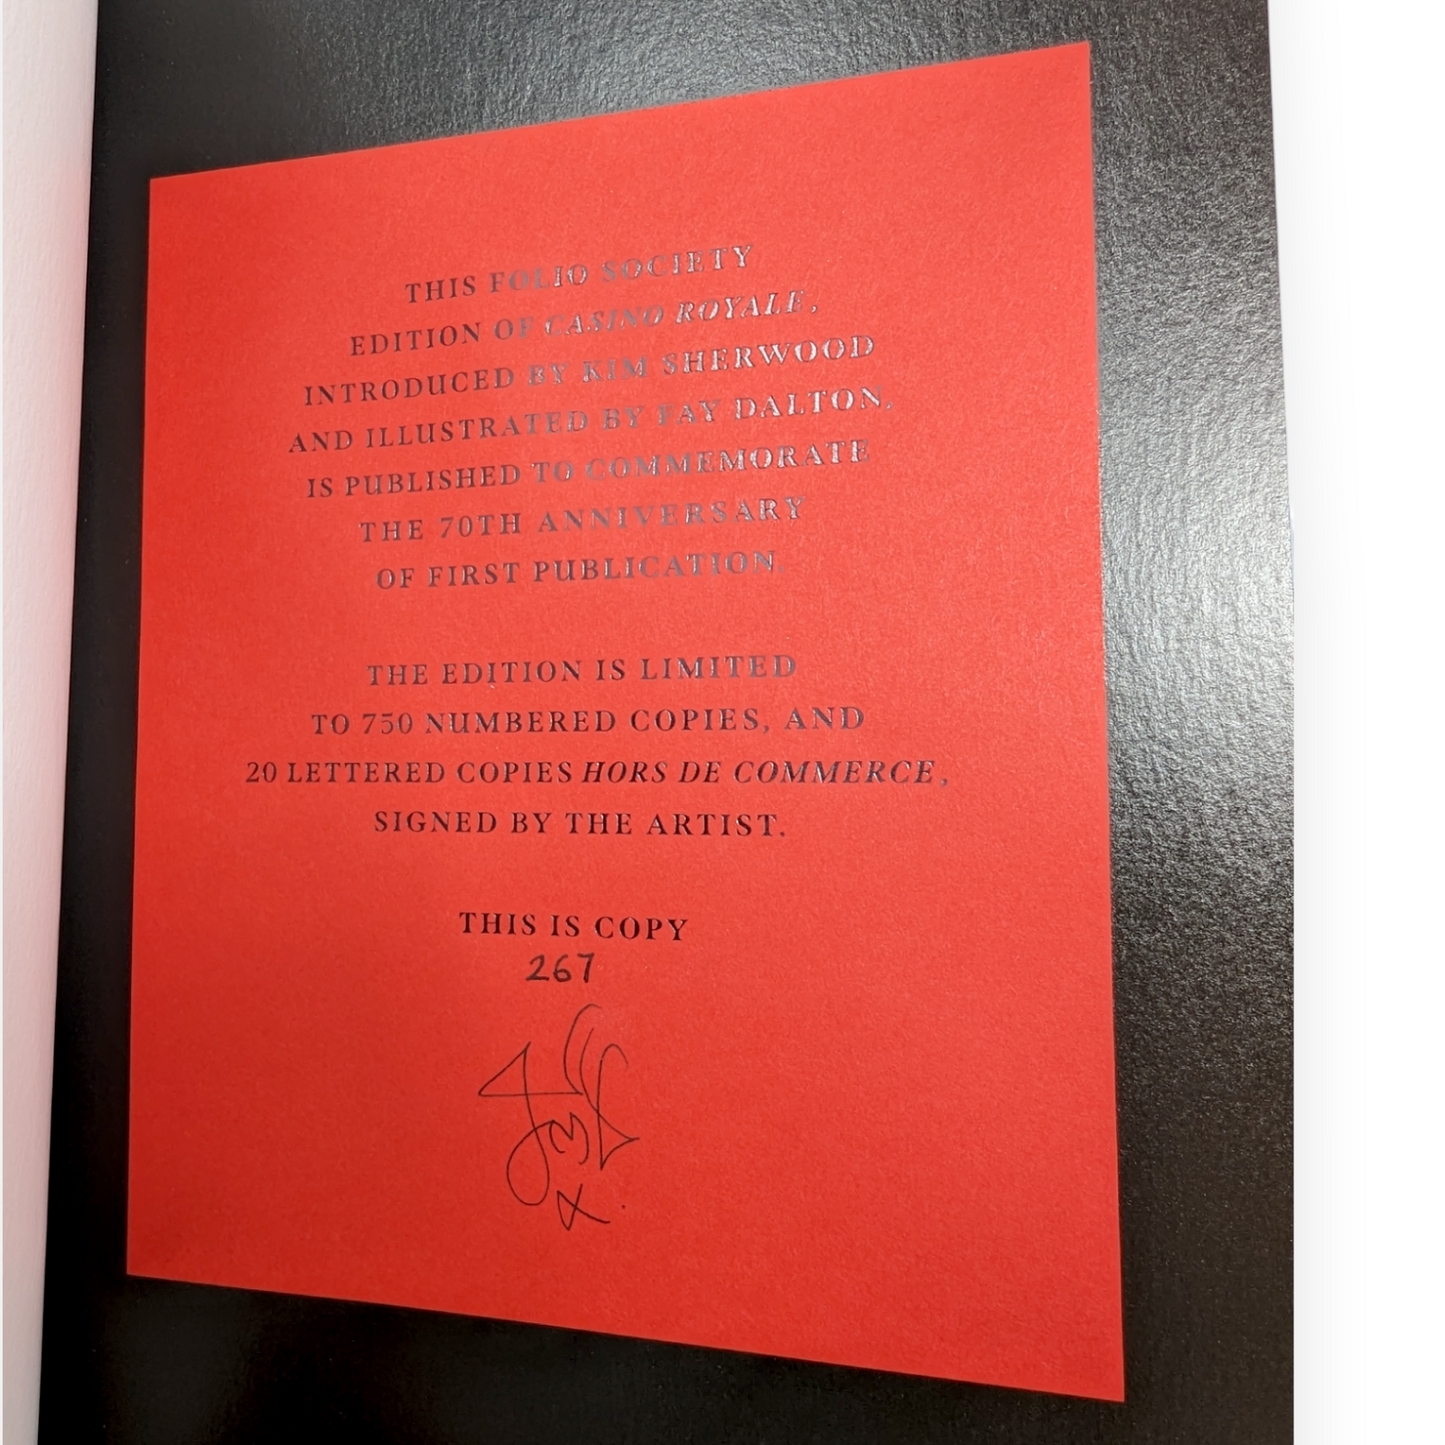 THIS FOLIO SOCIETY
EDITION OF CASINO ROYALE,
INTRODUCED BY KIM SHERWOOD
AND ILLUSTRATED BY FAY DALTON,
IS PUBLISHED TO COMMEMORATE
THE 70TH ANNIVERSARY
OF FIRST PUBLICATION.
THE EDITION IS LIMITED
TO 750 NUMBERED COPIES, AND
20 LETTERED COPIES HORS DE COMMERCE,
SIGNED BY THE ARTIST.
THIS IS COPY
267